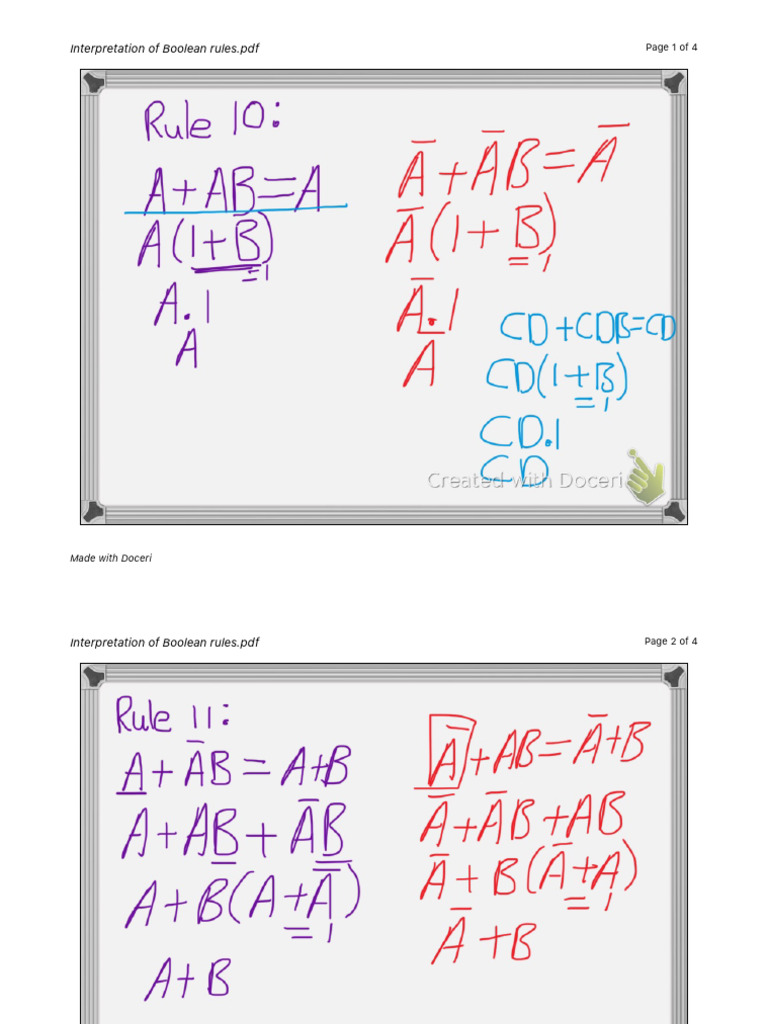 Interpretation of Boolean rules.pdf
Page 1 of 4
Rule 10:
A + AB = A
A(1 + B)
= 1
A . 1
A
A̅ + A̅B = A̅
A̅(1 + B)
= 1
A̅ . 1
A̅
CD + CDB = CD
CD(1 + B)
= 1
CD . 1
CD
Created with Doceri
Made with Doceri
Interpretation of Boolean rules.pdf
Page 2 of 4
Rule 11:
A + A̅B = A + B
A + AB + A̅B
A + B(A + A̅)
= 1
A + B
A̅ + AB = A̅ + B
A̅ + A̅B + AB
A̅ + B(A̅ + A)
= 1
A̅ + B